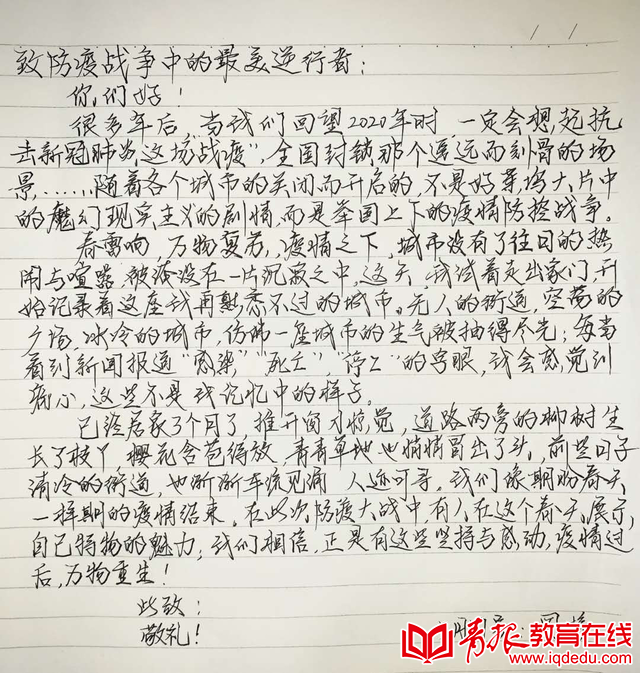 致防疫战争中的最美逆行者：
你们好！
很多年后，当我们回望2020年时，一定会想起抗
击新冠肺炎这场“战疫”，全国封锁那个遥远而刻骨的场
景，……随着各个城市的关闭而开启的，不是好莱坞大片中
的魔幻现实主义的剧情，而是举国上下的疫情防控战争。
春雷响，万物复苏，疫情之下，城市没有了往日的热
闹与喧嚣，被淹没在一片沉寂之中，这天，我试着走出家门，开
始记录着这座我再熟悉不过的城市。无人的街道，空荡的
广场，冰冷的城市，仿佛一座城市的生气被抽得尽光；每当
看到新闻报道“感染”“死亡”，“停工”的字眼，我会感觉到
痛心，这些不是我记忆中的样子。
已经居家了个月了，推开窗才惊觉，道路两旁的柳树生
长了枝丫，樱花含苞待放，青青草地也悄悄冒出了头，前些日子
清冷的街道，也渐渐车流见涌，人迹可寻，我们像期盼春天
一样期的疫情结束。在此次防疫大战中，有人在这个春天，展示
自己特物的魅力，我们相信，正是有这些坚持与感动，疫情过
后，万物重生！
此致：
敬礼！
青报教育在线
www.iqdedu.com